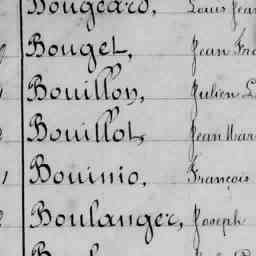 Bougeard, Louis Jean
Bouget, Jean
Bouillon, Julien
Bouillot, Jean Mar
Bouinio, François
Boulanger, Joseph